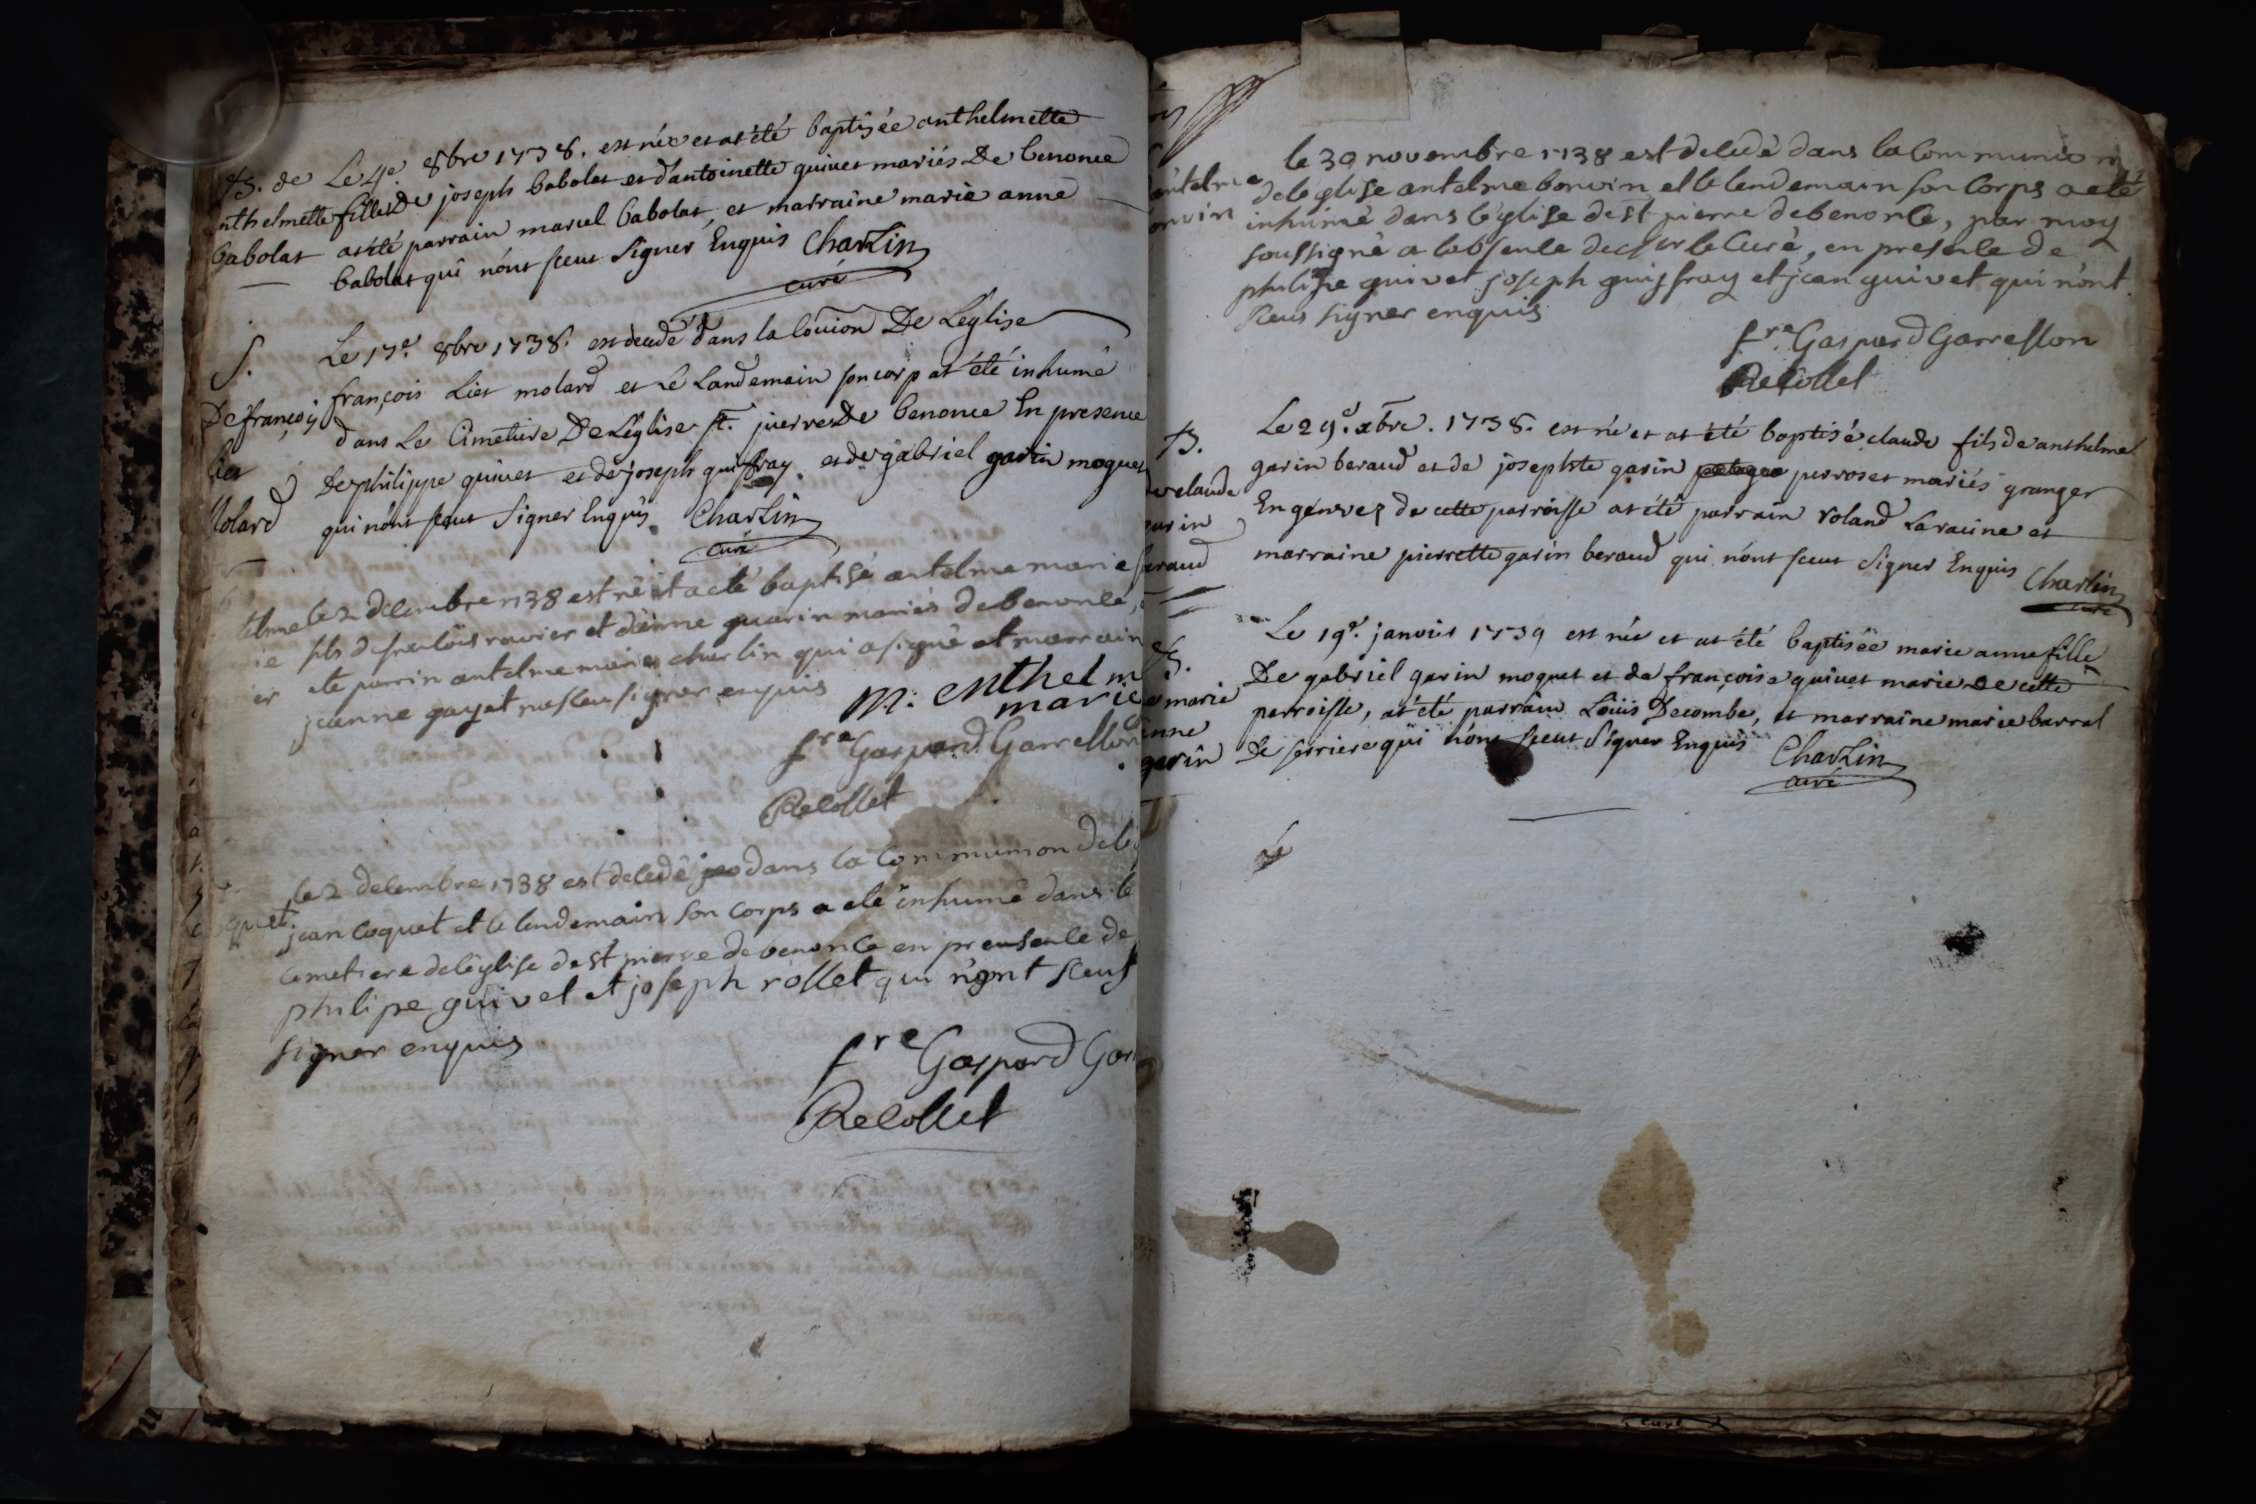 B. de Le 4e 8bre 1738. est née et at été baptisée anthelmette
anthelmette fille de joseph babolat et d'antoinette quivet mariés De benonce
babolat at été parrain marcel babolat, et marraine marie anne
babolat qui n'ont sceut signer Enquis Charlin
curé
S. Le 17e. 8bre 1738. est decedé dans la com̄ion De Leglise
De françois françois Liet molard et Le Landemain son corp at été inhumé
liet dans Le Cimetiere De Léglise st. pierre De benonce En presence
De philippe quivet et de joseph guiffray et de gabriel garin moquet
Molard qui n'ont sceut signer Enquis Charlin
curé
telme le 2 decembre 1738 est né et a eté baptisé antelme marie
ie fils de francois ravier et d'enne guarin mariés de benonce,
er ete parrin antelme marie charlin qui a signé et marrain
jeanne gayet na sceu signer enquis m: enthelm
marie
fre Gaspard Garresson
Recollet
le 2 decembre 1738 est decedé dans la Communion de leg
quet jean Coquet et le lendemain son corps a eté inhumé dans le
cemetiere de léglise de st pierre de benonce en presence de
philipe quivet et joseph rollet qui n'ont sceus
signer enquis
fre Gaspard Gar
Recollet
le 30 novembre 1738 est decedé dans la Communion
antelme de leglise antelme bonvin et le lendemain son Corps a eté
onvin inhumé dans l'église de st pierre de benonce, par moy
soussigné a labsence de sr le Curé, en presence de
philipe quivet joseph guiffray et jean quivet qui n'ont
sceus signer enquis
fre Gaspard Garresson
Recollet
B. Le 29e. xbre. 1738. est né et at été baptisé claude fils de anthelme
de claude garin beraud et de josephte garin perroset mariés granger
garin En genevez de cette parroisse at été parrain roland Laracine et
beraud marraine pierrette garin beraud qui n'ont sceut signer Enquis Charlin
curé
B. Le 19e. janvier 1739 est née et at été baptisée marie anne fille
marie De gabriel garin moquet et de françoise quivet marie De cette
anne parroisse, at été parrain Loüis Decombe, et marraine marie barral
garin De serriere qui n'ont sceut signer Enquis Charlin
curé
curé